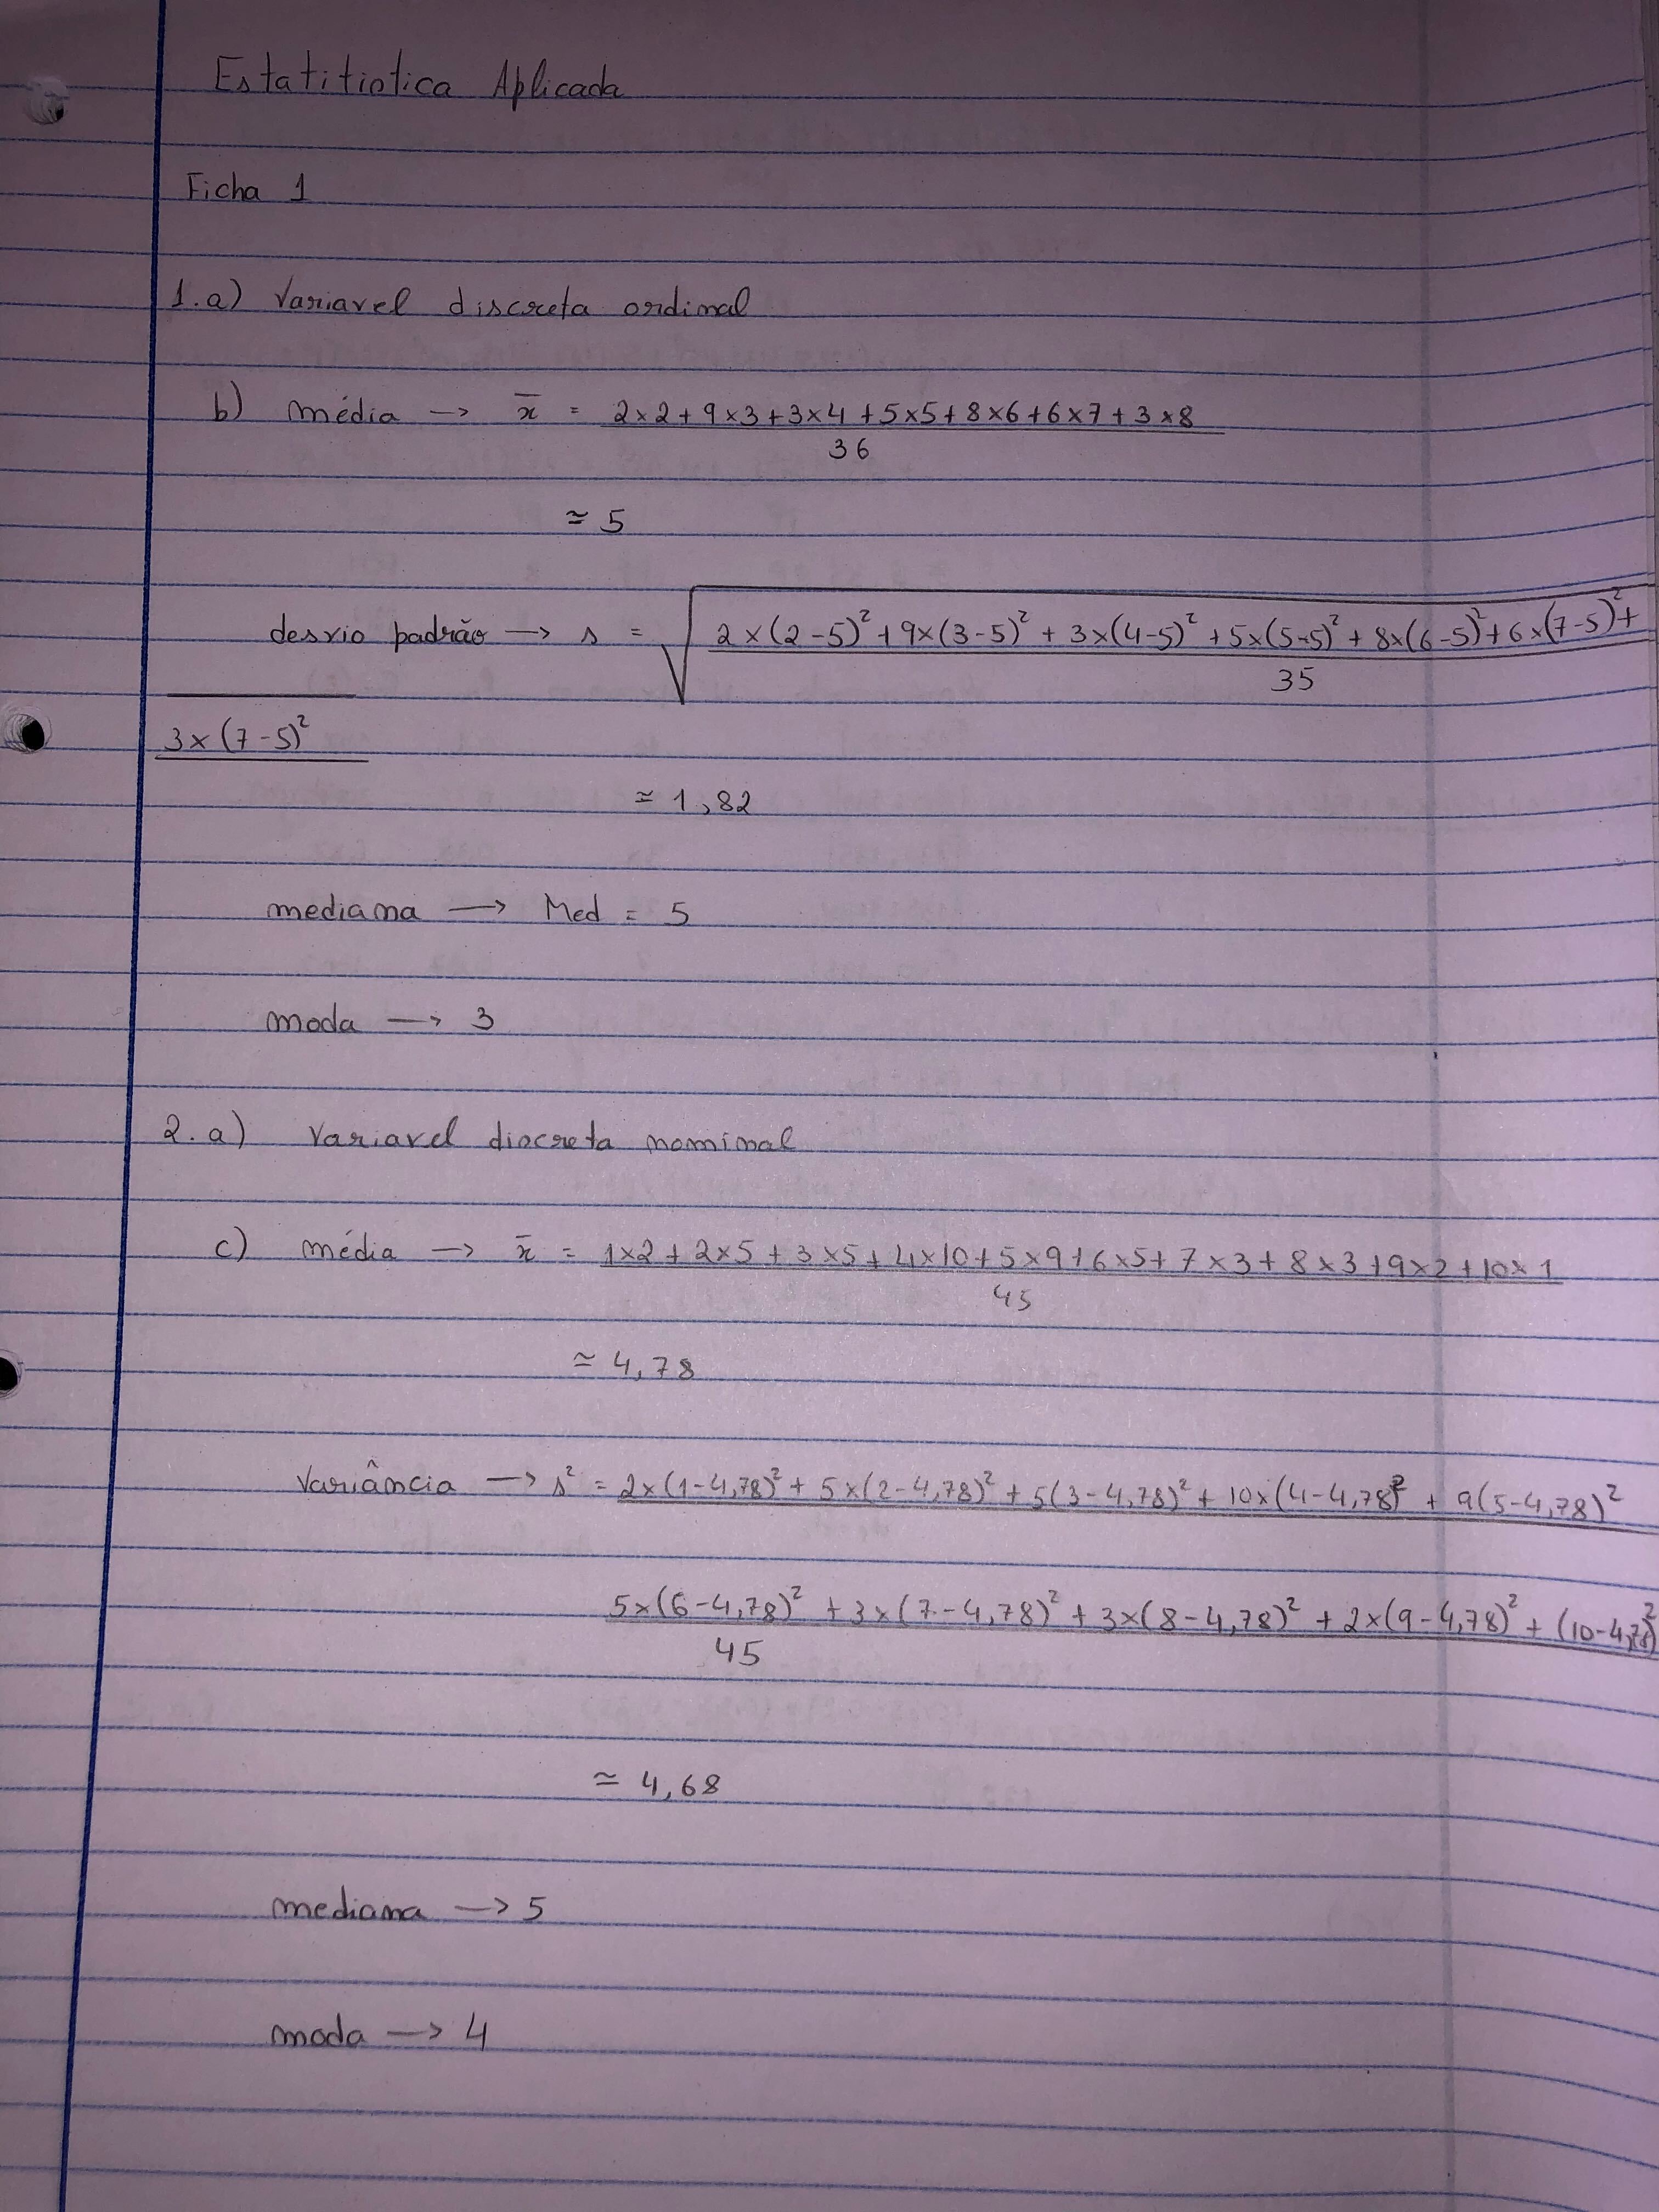 Estatitistica Aplicada
Ficha 1
1.a) Variavel discreta ordinal
b) média → x̄ = 2×2+9×3+3×4+5×5+8×6+6×7+3×8
36
≃ 5
desvio padrão → s = √ 2×(2-5)²+9×(3-5)²+3×(4-5)²+5×(5-5)²+8×(6-5)²+6×(7-5)²+
35
3×(7-5)²
≃ 1,82
mediana → Med = 5
moda → 3
2.a) Variavel discreta nominal
c) média → x̄ = 1×2+2×5+3×5+4×10+5×9+6×5+7×3+8×3+9×2+10×1
45
≃ 4,78
Variância → s² = 2×(1-4,78)²+5×(2-4,78)²+5(3-4,78)²+10×(4-4,78)²+9(5-4,78)²
5×(6-4,78)²+3×(7-4,78)²+3×(8-4,78)²+2×(9-4,78)²+(10-4,78)²
45
≃ 4,68
mediana → 5
moda → 4